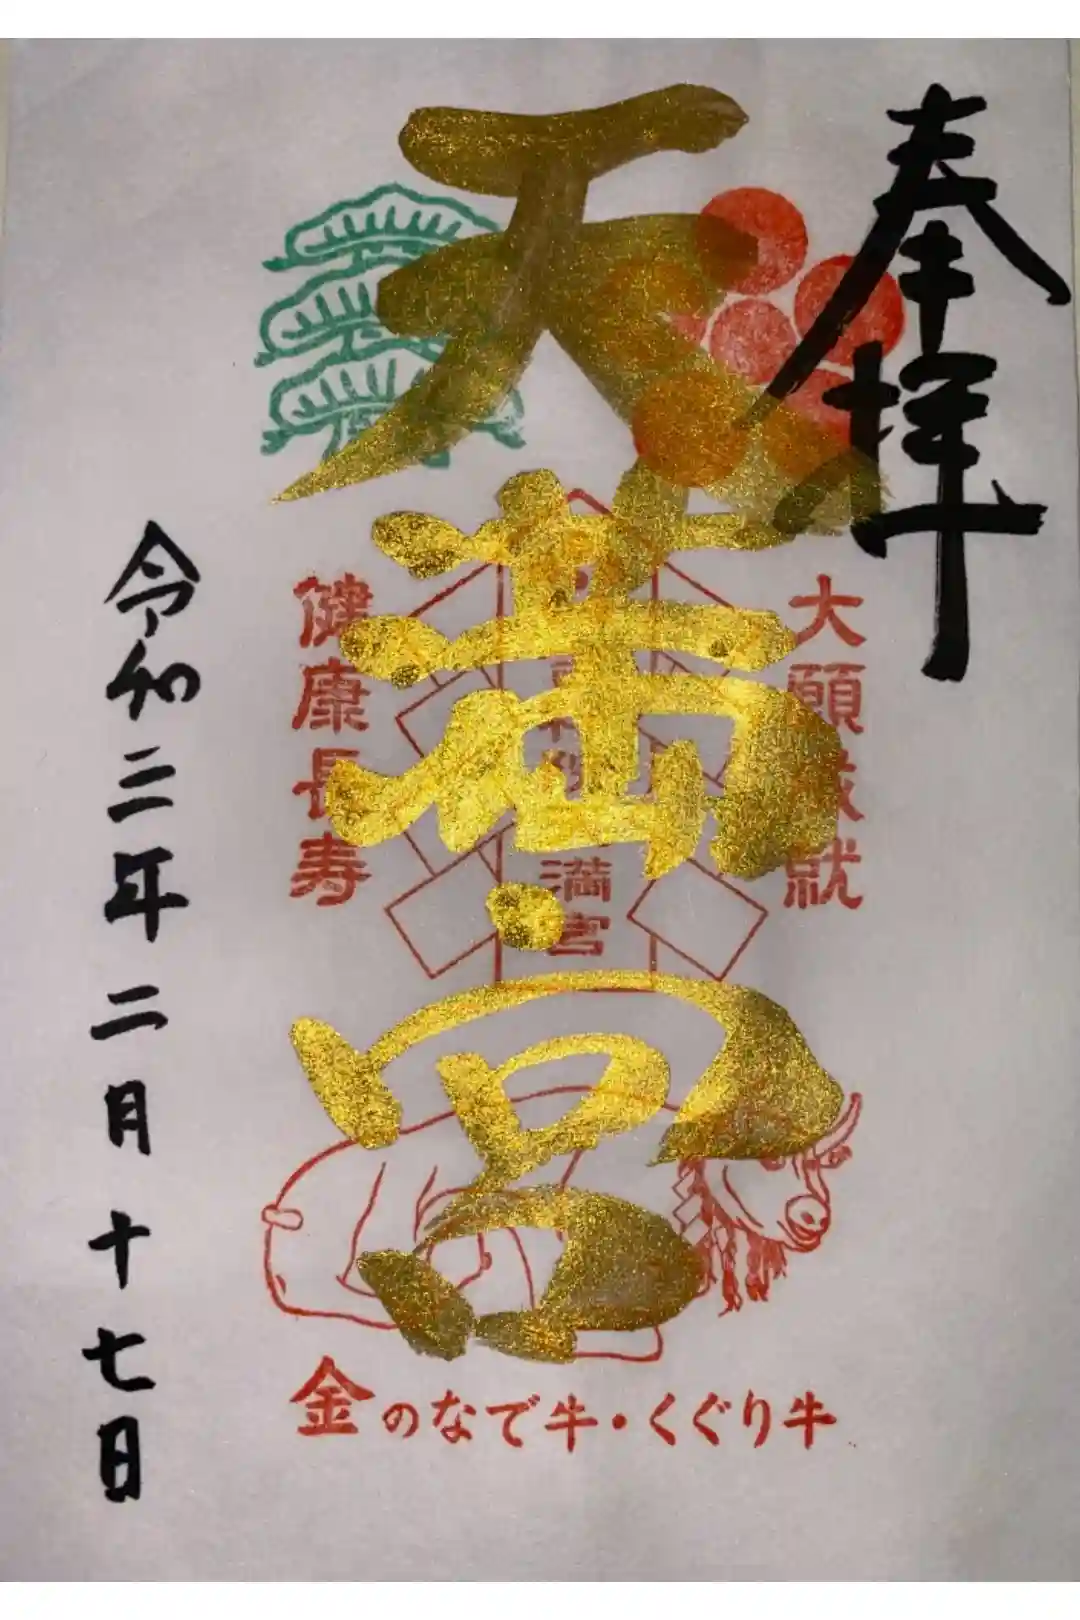 奉拝
天満宮
大願成就
満宮
健康長寿
令和二年二月十七日
金のなで牛・くぐり牛